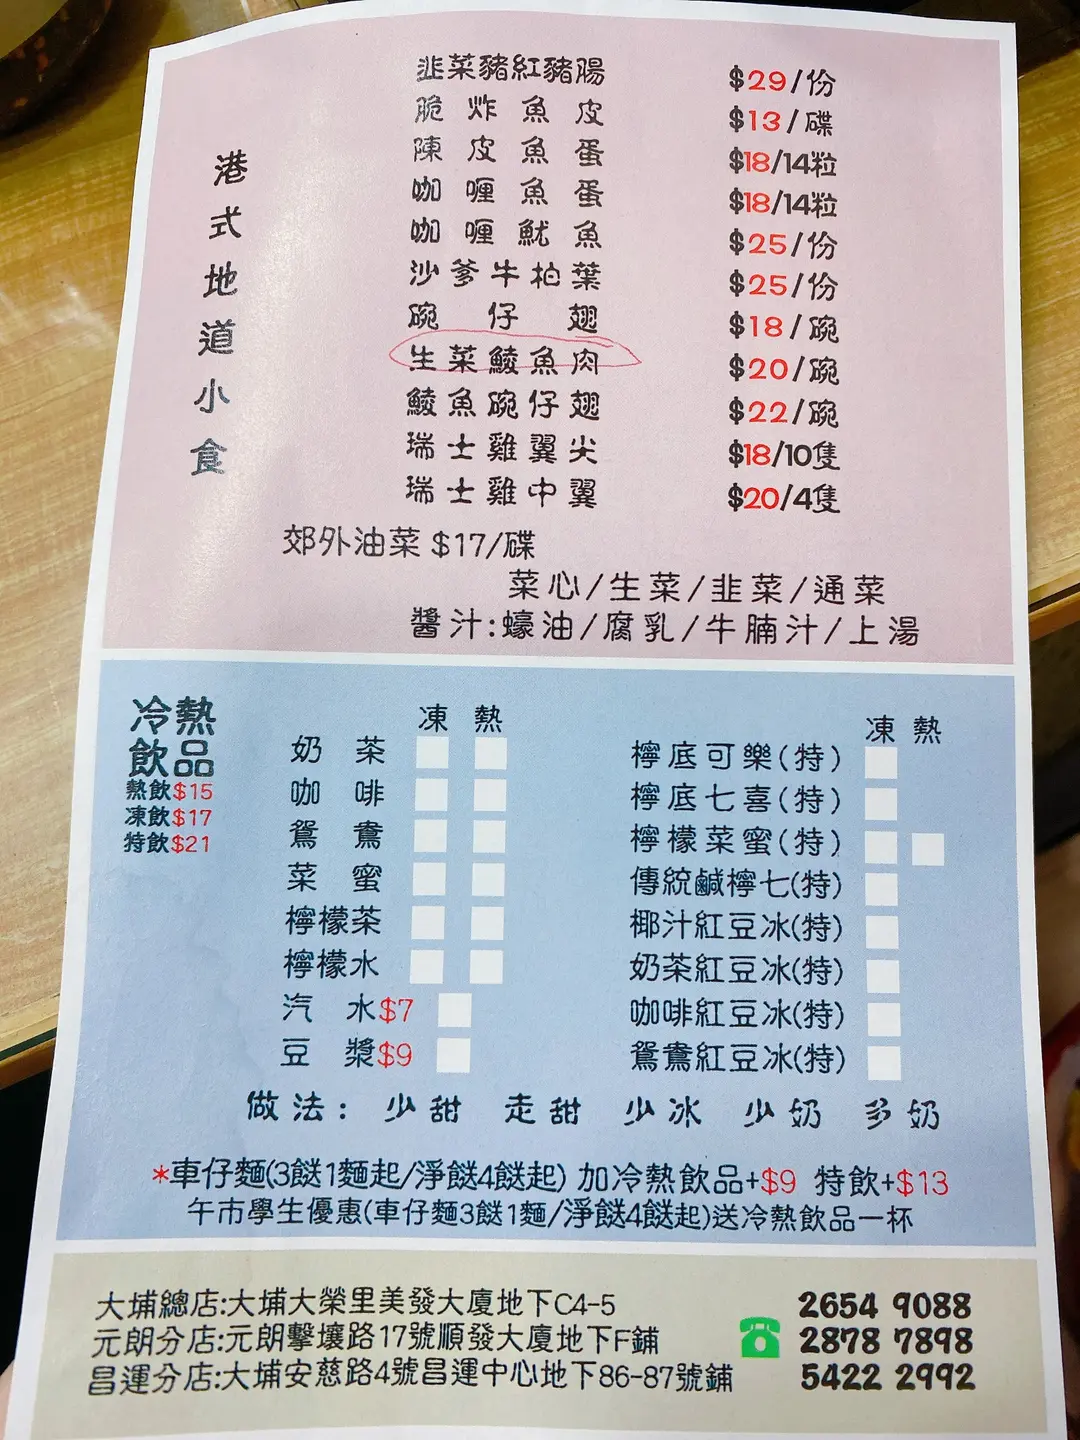 港式地道小食
韭菜豬紅豬腸 $29/份
脆炸魚皮 $13/碟
陳皮魚蛋 $18/14粒
咖喱魚蛋 $18/14粒
咖喱魷魚 $25/份
沙爹牛柏葉 $25/份
碗仔翅 $18/碗
生菜鯪魚肉 $20/碗
鯪魚碗仔翅 $22/碗
瑞士雞翼尖 $18/10隻
瑞士雞中翼 $20/4隻
郊外油菜 $17/碟
菜心/生菜/韭菜/通菜
醬汁:蠔油/腐乳/牛腩汁/上湯
冷熱
飲品
熱飲$15
凍飲$17
特飲$21
凍 熱
奶茶
咖啡
鴛鴦
菜蜜
檸檬茶
檸檬水
汽水$7
豆漿$9
凍 熱
檸底可樂(特)
檸底七喜(特)
檸檬菜蜜(特)
傳統鹹檸七(特)
椰汁紅豆冰(特)
奶茶紅豆冰(特)
咖啡紅豆冰(特)
鴛鴦紅豆冰(特)
做法: 少甜 走甜 少冰 少奶 多奶
*車仔麵(3餸1麵起/淨餸4餸起) 加冷熱飲品+$9 特飲+$13
午市學生優惠(車仔麵3餸1麵/淨餸4餸起)送冷熱飲品一杯
大埔總店:大埔大榮里美發大廈地下C4-5 2654 9088
元朗分店:元朗擊壤路17號順發大廈地下F鋪 2878 7898
昌運分店:大埔安慈路4號昌運中心地下86-87號鋪 5422 2992